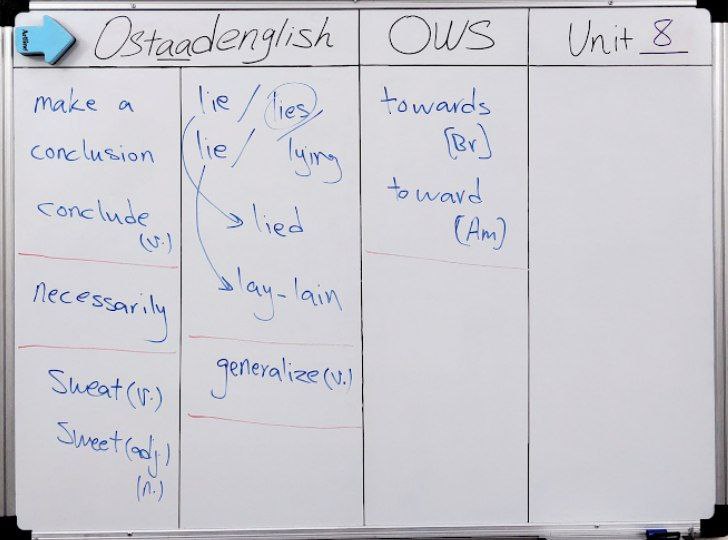 Ostaadenglish
OWS
Unit 8
make a
conclusion
conclude
(v.)
necessarily
Sweat (v.)
Sweet (adj.)
(n.)
lie / lies /
lie / lying
lied
lay - lain
generalize (v.)
towards
[Br]
toward
[Am]